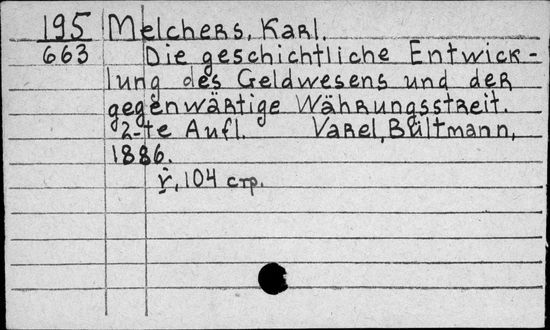 195 Melchers, Karl.
663 Die geschichtliche Entwick-
lung des Geldwesens und der
gegenwärtige Währungsstreit.
2-te Aufl. Varel, Bültmann,
1886.
V, 104 стр.